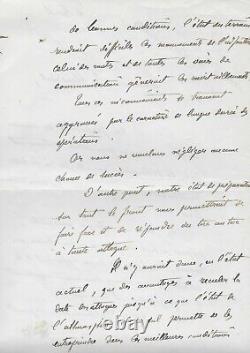 de bonnes conditions, l'état des terrains
rendrait difficile les mouvements de l'infanterie
celui des routes et de toutes les voies de
communications gêneraient les ravitaillements
Tous ces inconvénients se trouvent
aggravés par le caractère de longue durée des
opérations
Or nous ne voulons négliger aucune
chance de succès.
D'autre part, notre état de préparation
sur tout le front nous permettrait de
faire face et de répondre de tir au tir
à toute attaque.
Il n'y aurait donc, en l'état
actuel, que des avantages à reculer la
date des attaques jusqu'à ce que l'état de
l'atmosphère permette de les
entreprendre dans les meilleures conditions